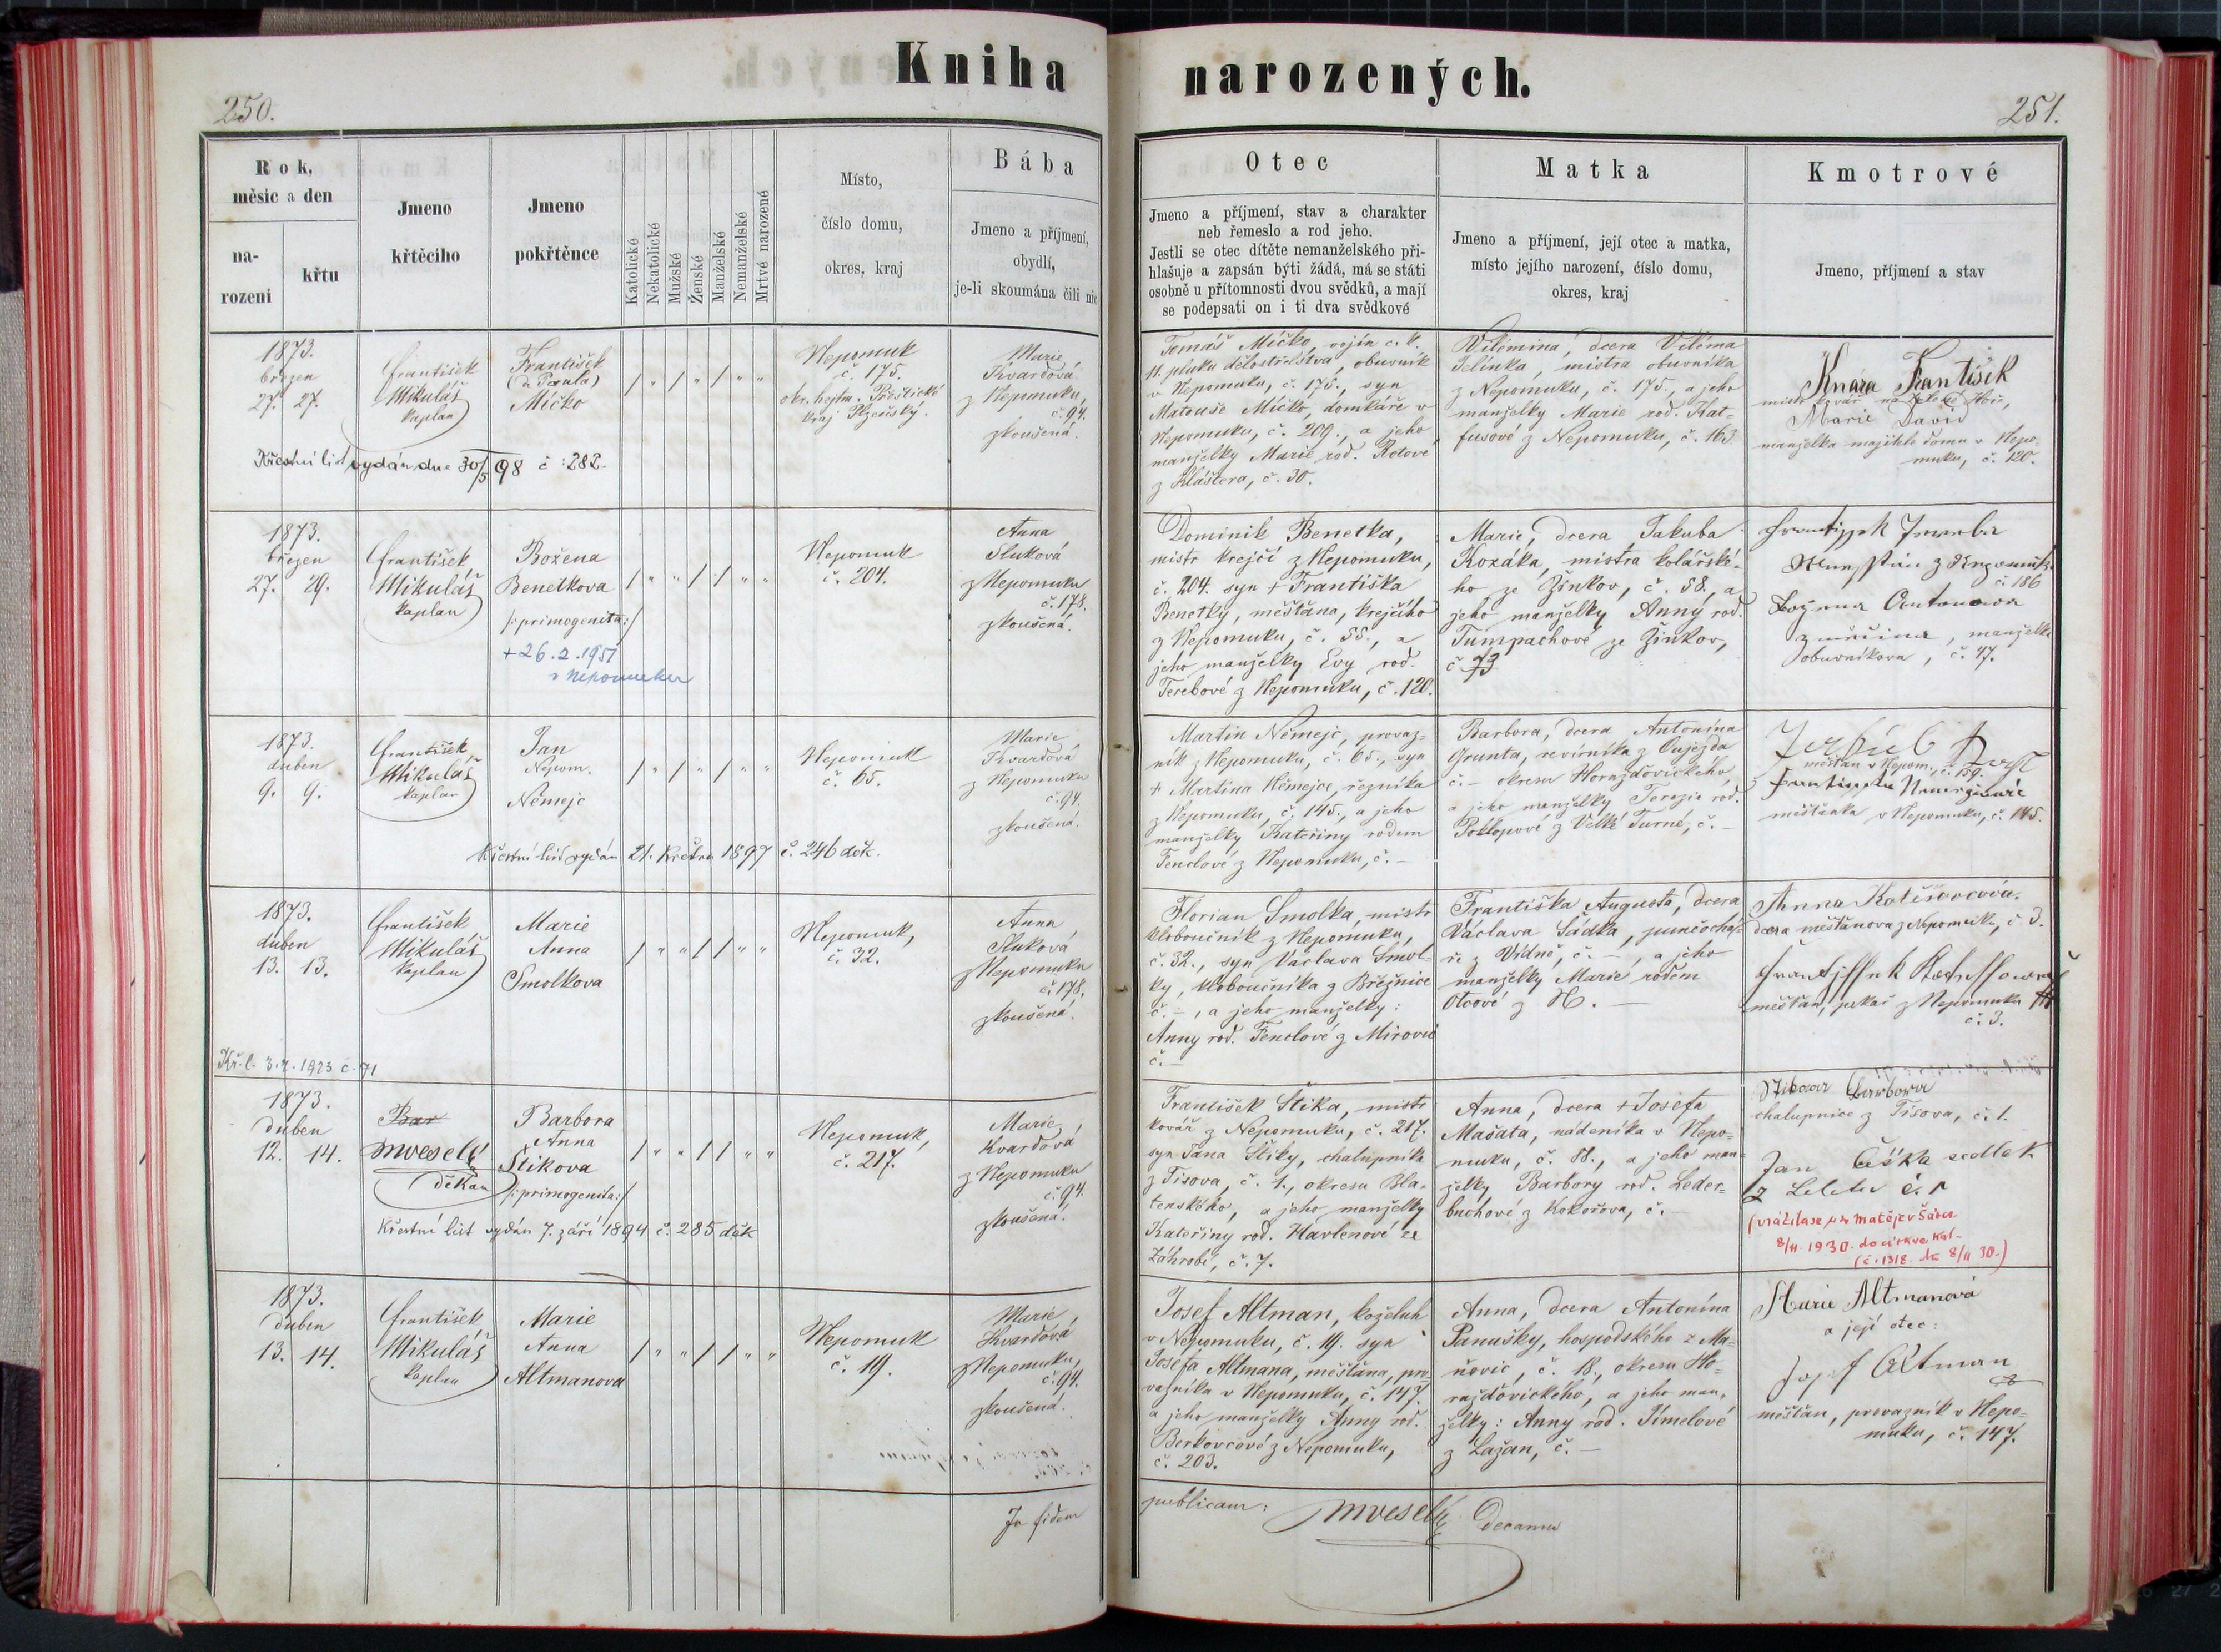 Kniha narozených.
250.
251.
Rok,
měsíc a den
na-
rozeni
křtu
Jmeno
křtěcího
Jmeno
pokřtěnce
Katolické
Nekatolické
Mužské
Ženské
Manželské
Nemanželské
Mrtvé narozené
Místo,
číslo domu,
okres, kraj
Bába
Jmeno a příjmení,
obydlí,
je-li skoumána čili nic
Otec
Jmeno a příjmení, stav a charakter
neb řemeslo a rod jeho.
Jestli se otec dítěte nemanželského při-
hlašuje a zapsán býti žádá, má se státi
osobně u přítomnosti dvou svědků, a mají
se podepsati on i ti dva svědkové
Matka
Jmeno a příjmení, její otec a matka,
místo jejího narození, číslo domu,
okres, kraj
Kmotrové
Jmeno, příjmení a stav
1873.
březen
27. 27.
František
Mikuláš
kaplan
František
(de Paula)
Míčko
/ " / " / " "
Nepomuk
č. 175.
okr. hejtm. Přeštické
kraj Plzeňský.
Marie
Kvardová
z Nepomuku,
č. 94.
zkoušená.
Tomáš Míčko, vojín c. k.
11. pluku dělostřelstva, obuvník
v Nepomuku, č. 175., syn
Matouše Míčko, domkáře v
Nepomuku, č. 209., a jeho
manželky Marie rod. Rotové
z Kláštera, č. 30.
Vilémina, dcera Viléma
Jelínka, mistra obuvníka
z Nepomuku, č. 175., a jeho
manželky Marie rod. Kat-
fusové z Nepomuku, č. 163.
Knára František
Marie David
manželka majitele domu v Nepo-
muku, č. 120.
Křestní list vydán dne 30/5 98 č: 282.
1873.
březen
27. 29.
František
Mikuláš
kaplan
Božena
Benetkova
/:primogenita:/
+26.2.1951
v Nepomuku
/ " " / / " "
Nepomuk
č. 204.
Anna
Sluková
z Nepomuku
č. 178.
zkoušená.
Dominik Benetka,
mistr krejčí z Nepomuku,
č. 204. syn + Františka
Benetky, měšťana, krejčího
z Nepomuku, č. 55., a
jeho manželky Evy rod.
Terebové z Nepomuku, č. 120.
Marie, dcera Jakuba
Kozáka, mistra kolářské-
ho ze Žinkov, č. 58., a
jeho manželky Anny rod.
Tumpachové ze Žinkov,
č 73
č. 186
manželka
obuvníkova, č. 47.
1873.
duben
9. 9.
František
Mikuláš
kaplan
Jan
Nepom.
Němejc
/ " / " / " "
Nepomuk
č. 65.
Marie
Kvardová
z Nepomuku
č. 94.
zkoušená.
Martin Němejc, provaz-
ník z Nepomuku, č. 65., syn
+ Martina Němejce, řezníka
z Nepomuku, č. 145., a jeho
manželky Kateřiny rodem
Fenclové z Nepomuku, č. –
Barbora, dcera Antonína
Grunta, revírníka z Oujezda
č. – okresu Horažďovického,
a jeho manželky Terezie rod.
Poklopové z Velké Turné, č. –
měšťan v Nepom., č. 159.
měšťanka v Nepomuku, č. 145.
Křestní list vydán 21. Května 1897 č. 246 děk.
1873.
duben
13. 13.
František
Mikuláš
kaplan
Marie
Anna
Smolkova
/ " " / / " "
Nepomuk,
č. 32.
Anna
Sluková
z Nepomuku
č. 178.
zkoušená.
Florian Smolka, mistr
kloboučník z Nepomuku,
č. 32., syn Václava Smol-
ky, kloboučníka z Březnice
č. –, a jeho manželky:
Anny rod. Fenclové z Mirovic
č. –
Františka Augusta, dcera
Václava Sádka, punčocha-
ře z Vídně, č. –, a jeho
manželky Marie rodem
Otcové z N. –
Anna Kotěšovcová.
dcera měšťanova z Nepomuku, č. 3.
měšťan, pekař z Nepomuku
č. 3.
Kř. l. 3.7.1923 č. 71
1873.
duben
12. 14.
Bar
MVeselý
děkan
Barbora
Anna
Štikova
/:primogenita:/
/ " " / / " "
Nepomuk,
č. 217.
Marie
Kvardová
z Nepomuku
č. 94.
zkoušená.
František Štika, mistr
kovář z Nepomuku, č. 217.
syn Jana Štiky, chalupníka
z Třsova, č. 1., okresu Bla-
tenského, a jeho manželky
Kateřiny rod. Havlenové ze
Záhrobí, č. 7.
Anna, dcera + Josefa
Mašata, nádeníka v Nepo-
muku, č. 88., a jeho man-
želky Barbory rod. Leder-
buchové z Kokořova, č. –
Barbora
chalupnice z Třsova, č. 1.
Jan Čiška sedlák
8/11. 1930. do církve kat.
(č. 1318. 8/11 30.)
Křestní list vydán 7. září 1894 č. 285 děk
1873.
duben
13. 14.
František
Mikuláš
kaplan
Marie
Anna
Altmanova
/ " " / / " "
Nepomuk
č. 19.
Marie
Kvardová
z Nepomuku,
č. 94.
zkoušená.
Josef Altman, koželuh
v Nepomuku, č. 19. syn
Josefa Altmana, měšťana, pro-
vazníka v Nepomuku, č. 147.
a jeho manželky Anny rod.
Berkovcové z Nepomuku,
č. 203.
Anna, dcera Antonína
Panušky, hospodského z Ma-
ňovic, č. 18., okresu Ho-
ražďovického, a jeho man-
želky: Anny rod. Jímelové
z Lažan, č. –
Marie Altmanová
a její otec:
Josef Altman
měšťan, provazník v Nepo-
muku, č. 147.
In fidem
publicam: MVeselý Decanus